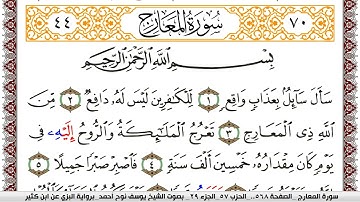 ٧٠ سُورَةُ الْمَعَارِجِ ٤٤
بِسْمِ اللَّهِ الرَّحْمَٰنِ الرَّحِيمِ
سَأَلَ سَآئِلُۢ بِعَذَابٍ وَاقِعٍ ١ لِّلْكَٰفِرِينَ لَيْسَ لَهُۥ دَافِعٌ ٢ مِّنَ
اللَّهِ ذِي الْمَعَارِجِ ٣ تَعْرُجُ الْمَلَٰٓئِكَةُ وَالرُّوحُ إِلَيْهِۦ فِي
يَوْمٍ كَانَ مِقْدَارُهُۥ خَمْسِينَ أَلْفَ سَنَةٍ ٤ فَاصْبِرْ صَبْرًا جَمِيلًا ٥
سورة المعارج _الصفحة ٥٦٨_ الحزب ٥٧_ الجزء ٢٩_ بصوت الشيخ يوسف نوح أحمد_ برواية البزي عن ابن كثير